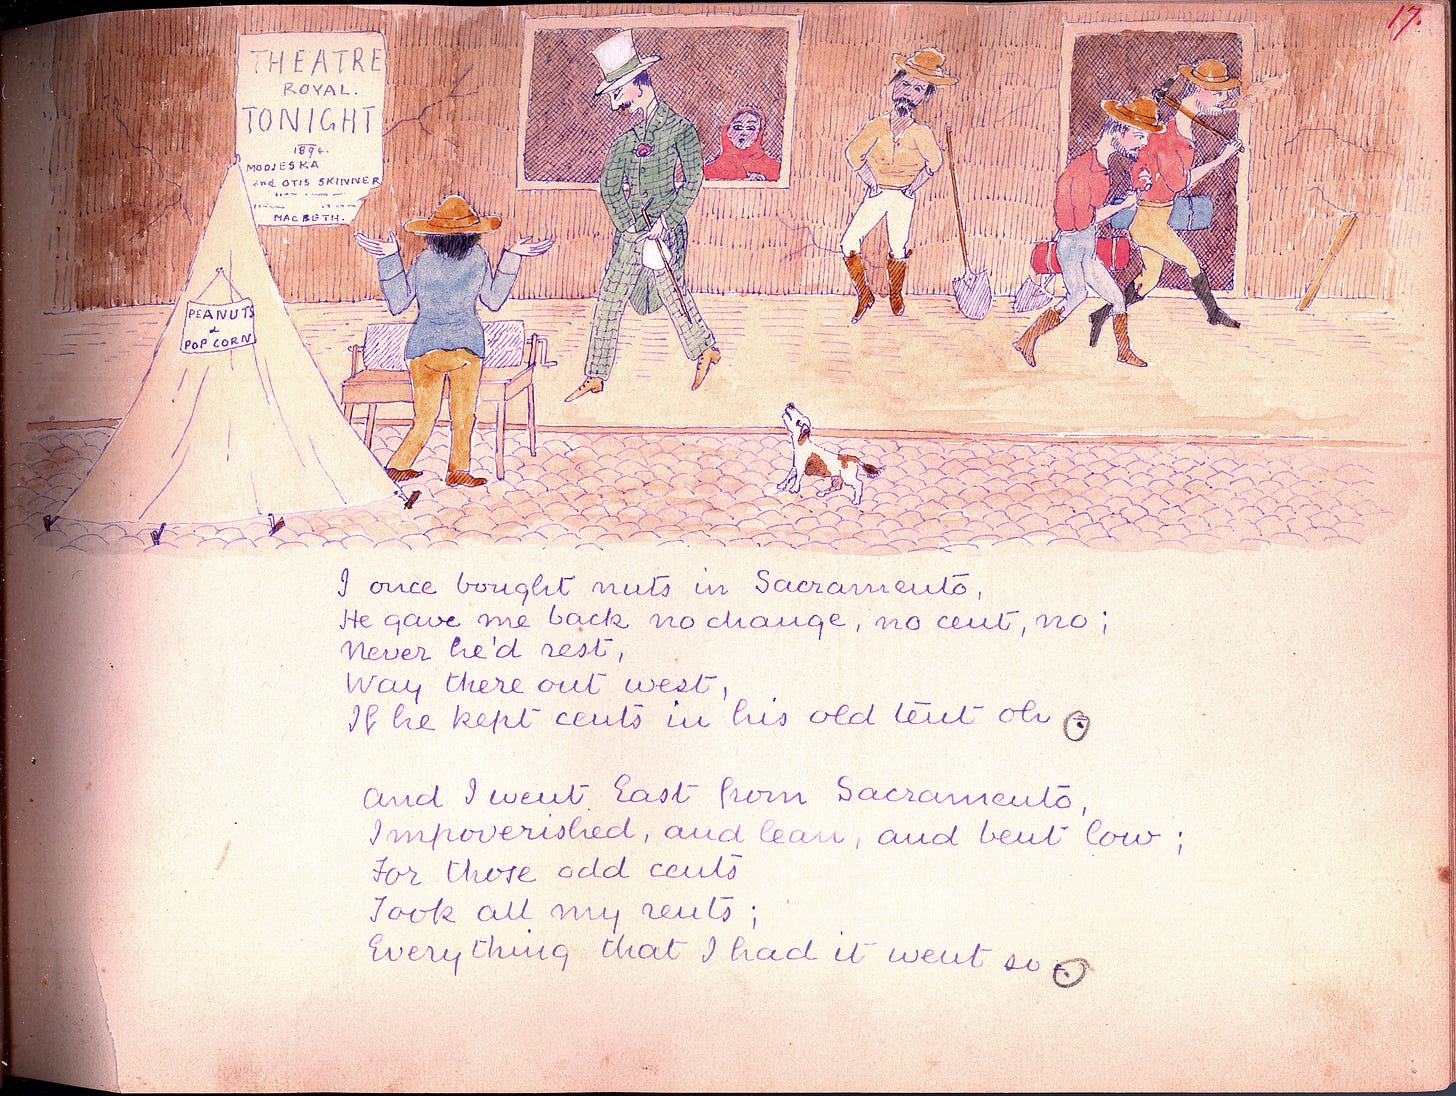 17.
THEATRE
ROYAL.
TONIGHT
1894.
MODJESKA
and OTIS SKINNER
MACBETH.
PEANUTS
&
POP CORN
I once bought nuts in Sacramento,
He gave me back no change, no cent, no;
Never he'd rest,
Way there out west,
If he kept cents in his old tent oh.
And I went East from Sacramento,
Impoverished, and lean, and bent low;
For those odd cents
Took all my rents;
Everything that I had it went so.